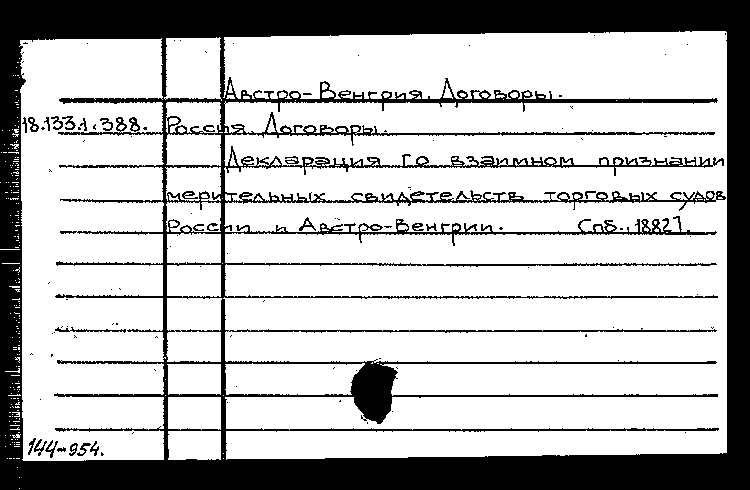 Австро-Венгрия. Договоры.
18.133.1.388. Россия. Договоры.
Декларация [о взаимном признании
мерительных свидетельств торговых судов
России и Австро-Венгрии. Спб., 1882].
144-954.